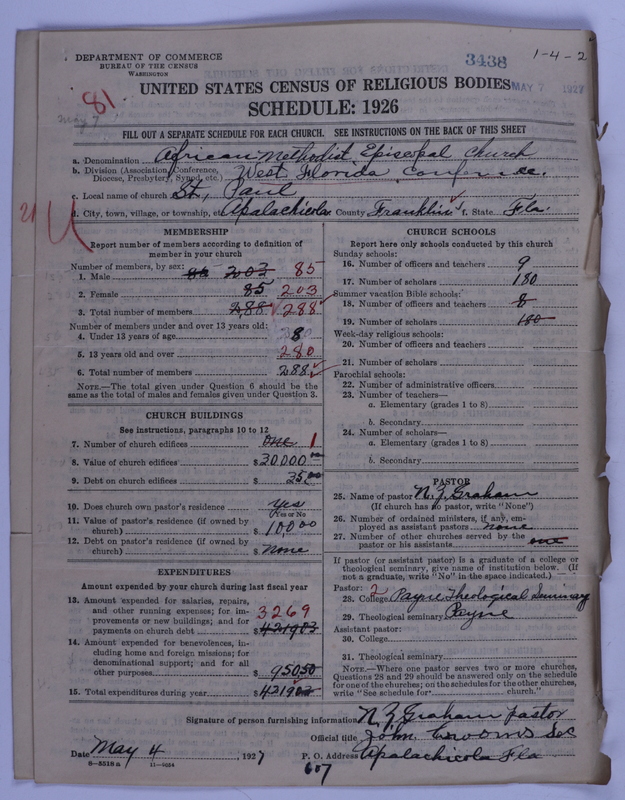 DEPARTMENT OF COMMERCE
BUREAU OF THE CENSUS
WASHINGTON
3438
1-4-2
MAY 7 1927
81
May 7
UNITED STATES CENSUS OF RELIGIOUS BODIES
SCHEDULE: 1926
FILL OUT A SEPARATE SCHEDULE FOR EACH CHURCH. SEE INSTRUCTIONS ON THE BACK OF THIS SHEET
a. Denomination African Methodist Episcopal Church
b. Division (Association, Conference, Diocese, Presbytery, Synod, etc.) West Florida Conference.
c. Local name of church St, Paul
d. City, town, village, or township, etc. Apalachicola County Franklin f. State Fla.
MEMBERSHIP
Report number of members according to definition of member in your church
Number of members, by sex:
1. Male 203 85
2. Female 85 203
3. Total number of members 288 288
Number of members under and over 13 years old:
4. Under 13 years of age 8
5. 13 years old and over 280
6. Total number of members 288
NOTE.—The total given under Question 6 should be the same as the total of males and females given under Question 3.
CHURCH BUILDINGS
See instructions, paragraphs 10 to 12
7. Number of church edifices one 1
8. Value of church edifices $30000.00
9. Debt on church edifices $ 25.00
10. Does church own pastor's residence? yes
Yes or No
11. Value of pastor's residence (if owned by church) $ 10,000
12. Debt on pastor's residence (if owned by church) $ None
EXPENDITURES
Amount expended by your church during last fiscal year
13. Amount expended for salaries, repairs, and other running expenses; for improvements or new buildings; and for payments on church debt $ 3269 421903
14. Amount expended for benevolences, including home and foreign missions; for denominational support; and for all other purposes $ 950.50
15. Total expenditures during year $ 421903
CHURCH SCHOOLS
Report here only schools conducted by this church
Sunday schools:
16. Number of officers and teachers 9
17. Number of scholars 180
Summer vacation Bible schools:
18. Number of officers and teachers 8
19. Number of scholars 180
Week-day religious schools:
20. Number of officers and teachers
21. Number of scholars
Parochial schools:
22. Number of administrative officers
23. Number of teachers—
a. Elementary (grades 1 to 8)
b. Secondary
24. Number of scholars—
a. Elementary (grades 1 to 8)
b. Secondary
PASTOR
25. Name of pastor N. Z. Graham
(If church has no pastor, write "None")
26. Number of ordained ministers, if any, employed as assistant pastors none
27. Number of other churches served by the pastor or his assistants one
If pastor (or assistant pastor) is a graduate of a college or theological seminary, give name of institution below. (If not a graduate, write "No" in the space indicated.)
Pastor:
28. College Payne Theological Seminary
29. Theological seminary Payne
Assistant pastor:
30. College
31. Theological seminary
NOTE.—Where one pastor serves two or more churches, Questions 28 and 29 should be answered only on the schedule for one of the churches; on the schedules for the other churches, write "See schedule for church."
Signature of person furnishing information N. Z. Graham pastor
Official title John Sec
Date May 4, 1927 P. O. Address Apalachicola Fla
8-3518 a 11-9024
607